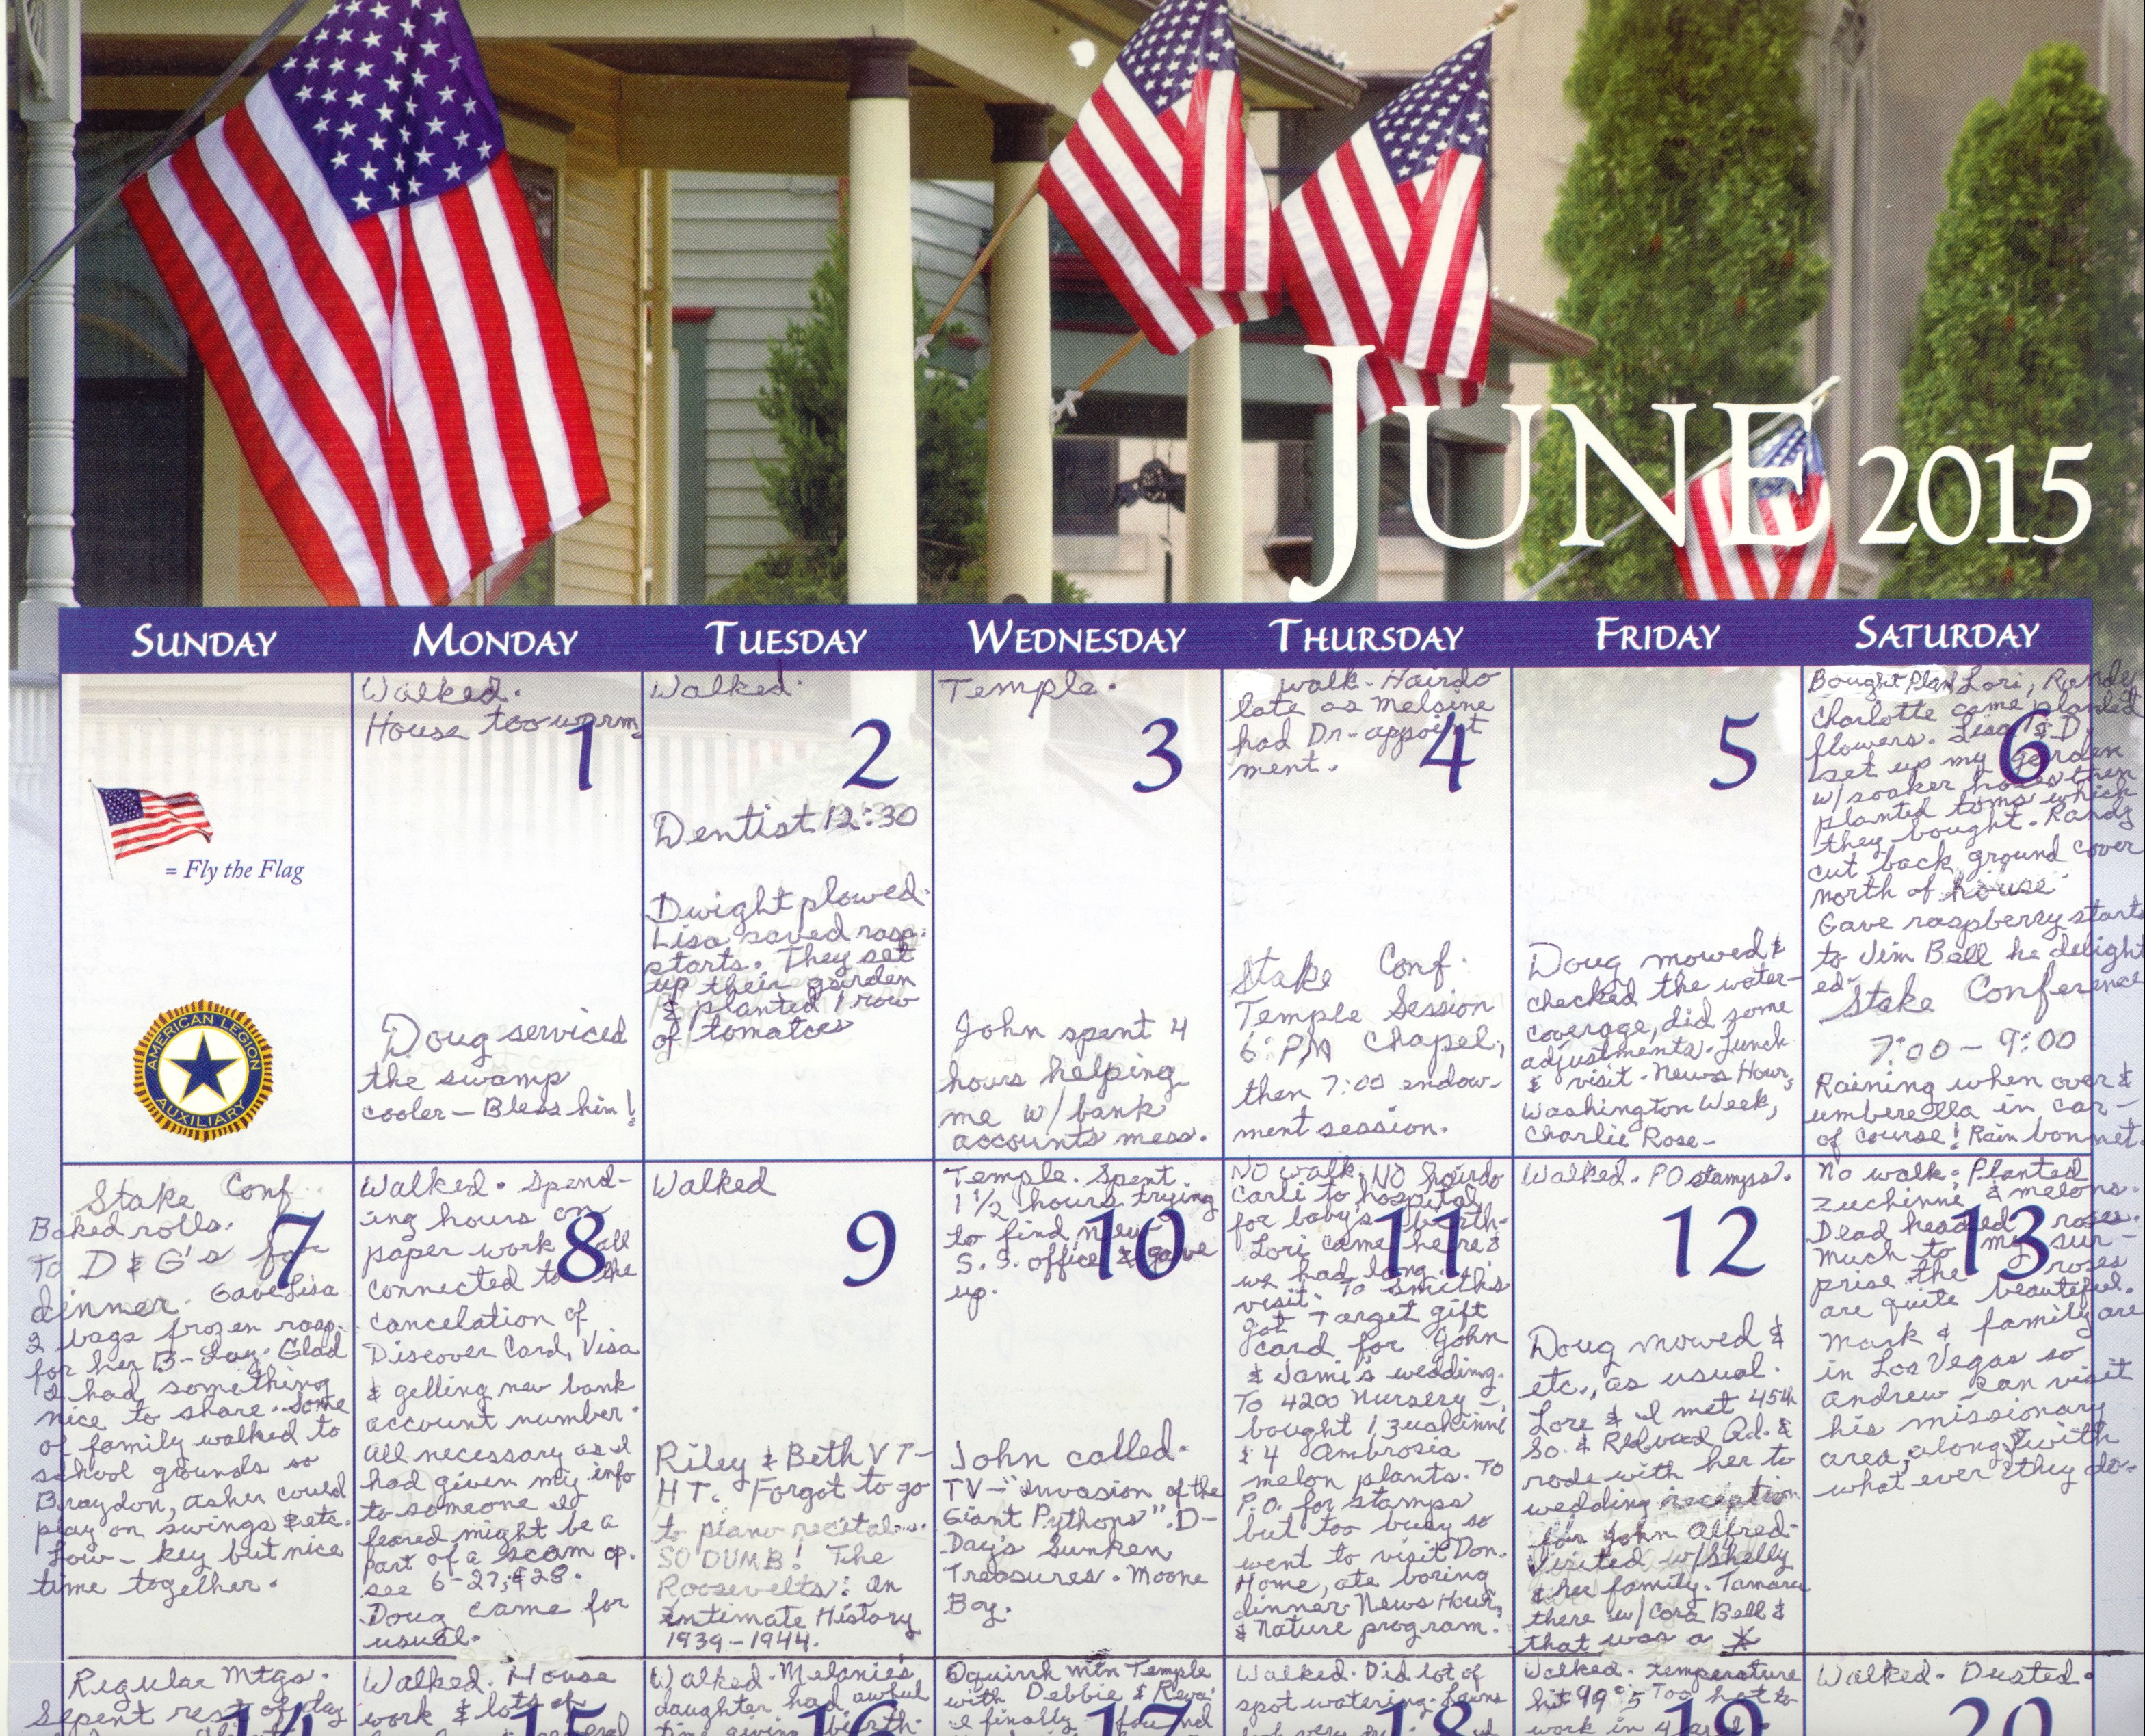 JUNE 2015
SUNDAY MONDAY TUESDAY WEDNESDAY THURSDAY FRIDAY SATURDAY
= Fly the Flag
AMERICAN LEGION
AUXILIARY
Walked.
House too warm.
1
Doug serviced
the swamp
cooler — Bless him!
Walked.
2
Dentist 12:30
Dwight plowed.
Lisa saved rasp.
starts. They set
up their garden
& planted 1 row
of tomatoes
Temple.
3
John spent 4
hours helping
me w/ bank
accounts mess.
walk. Hairdo
late as Melsine
had Dr. appoint
ment.
4
Stake Conf.
Temple Session
6: PM Chapel,
then 7:00 endow-
ment session.
5
Doug mowed &
checked the water-
coverage, did some
adjustments. Lunch
& visit. News Hour,
Washington Week,
Charlie Rose-
Bought Plan Lori, Randy
Charlotte came planted
flowers. Lisa & D.
set up my garden
w/ soaker hoses then
planted toms which
they bought. Randy
cut back ground cover
north of house
6
Gave raspberry starts
to Jim Bell he delight
ed.
Stake Conference
7:00 – 9:00
Raining when over &
umberella in car-
of course! Rain bonnet.
Stake Conf.
7
Baked rolls.
To D & G's for
dinner. Gave Lisa
2 bags frozen rasp.
for her B-day. Glad
I had something
nice to share. Some
of family walked to
school grounds so
Braydon, Asher could
play on swings & etc.
Low-key but nice
time together.
Walked. Spend-
ing hours on
paper work all
connected to the
8
cancelation of
Discover Card, Visa
& gelling new bank
account number.
All necessary as I
had given my info
to someone I
feared might be a
part of a scam op.
see 6-27, & 28.
Doug came for
usual.
Walked
9
Riley & Beth VT-
HT. Forgot to go
to piano recitals.
SO DUMB! The
Roosevelts: An
Intimate History
1939-1944.
Temple. Spent
1 1/2 hours trying
to find new
S. S. office & gave
up.
10
John called.
TV – "Invasion of the
Giant Pythons". D-
Day's Sunken
Treasures. Moone
Boy.
No walk, No hairdo
Carli to hospital
for baby's birth-
Lori came here &
we had long
visit. To Smith's
11
got Target gift
card for John
& Jami's wedding.
To 4200 Nursery –
bought 1 zuchinni
& 4 Ambrosia
melon plants. To
P.O. for stamps
but too busy so
went to visit Don.
Home, ate boring
dinner. News Hour,
& Nature program.
Walked. PO stamps.
12
Doug mowed &
etc., as usual.
Lore & I met 45th
So. & Redwood Rd. &
rode with her to
wedding reception
for John Alfred.
Visited w/ Shelly
& her family. Tamara
there w/ Cora Bell &
that was a *
No walk. Planted
zuchinni & melons.
Dead headed roses.
Much to my sur-
prise the roses
are quite beautiful.
13
Mark & family are
in Los Vegas so
Andrew can visit
his missionary
area, along with
what ever they do.
Regular Mtgs.
Spent rest of day
14
Walked. House
work & lots of
15
Walked. Melanie's
daughter had awful
time giving birth.
16
Oquirrh Mtn Temple
with Debbie & Reva.
I finally found
17
Walked. Did lot of
spot watering. Lawns
18
Walked. temperature
hit 99°5 Too hot to
work in yard.
19
Walked. Dusted.
20